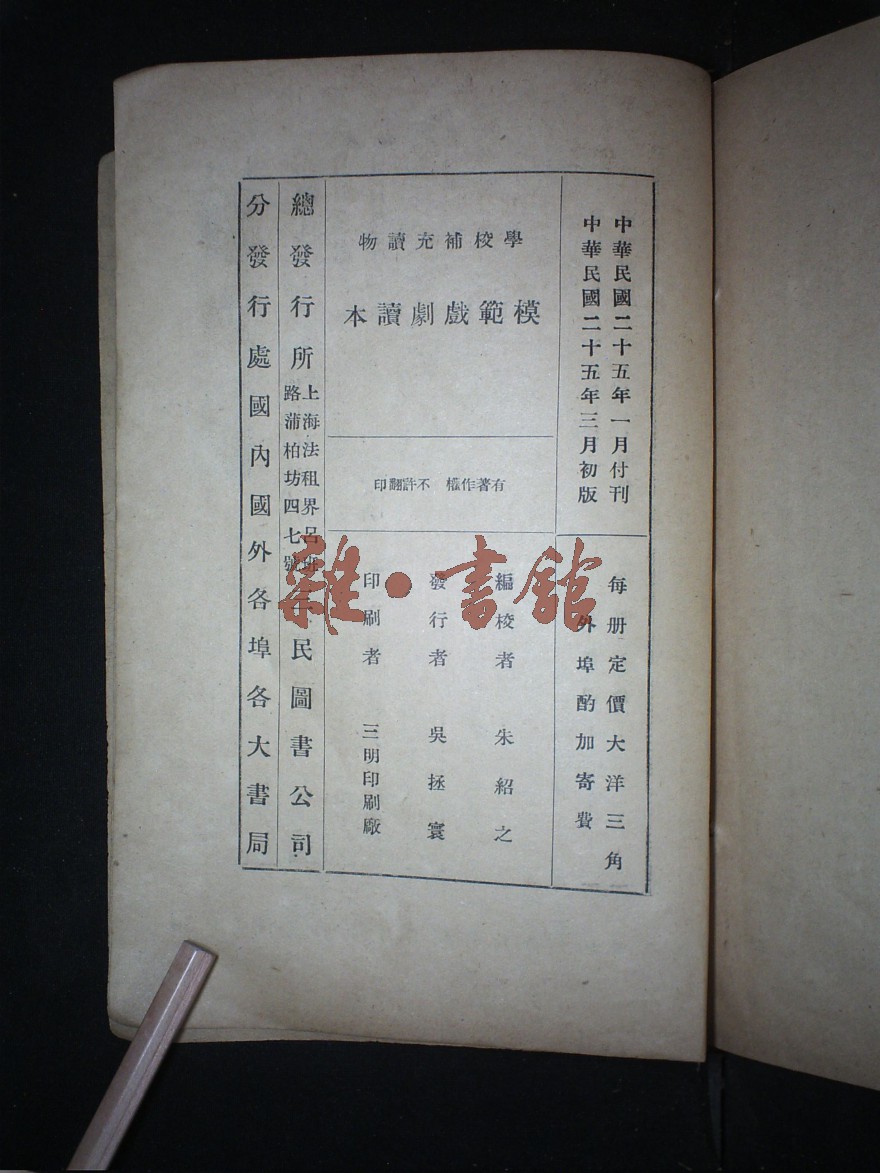 中華民國二十五年一月付刊
中華民國二十五年三月初版
每册定價大洋三角
外埠酌加寄費
學校補充讀物
模範戲劇讀本
有著作權 不許翻印
編校者 朱紹之
發行者 吳拯寰
印刷者 三明印刷廠
總發行所 上海法租界呂班路蒲柏坊四七號 三民圖書公司
分發行處國內國外各埠各大書局
雜·書館